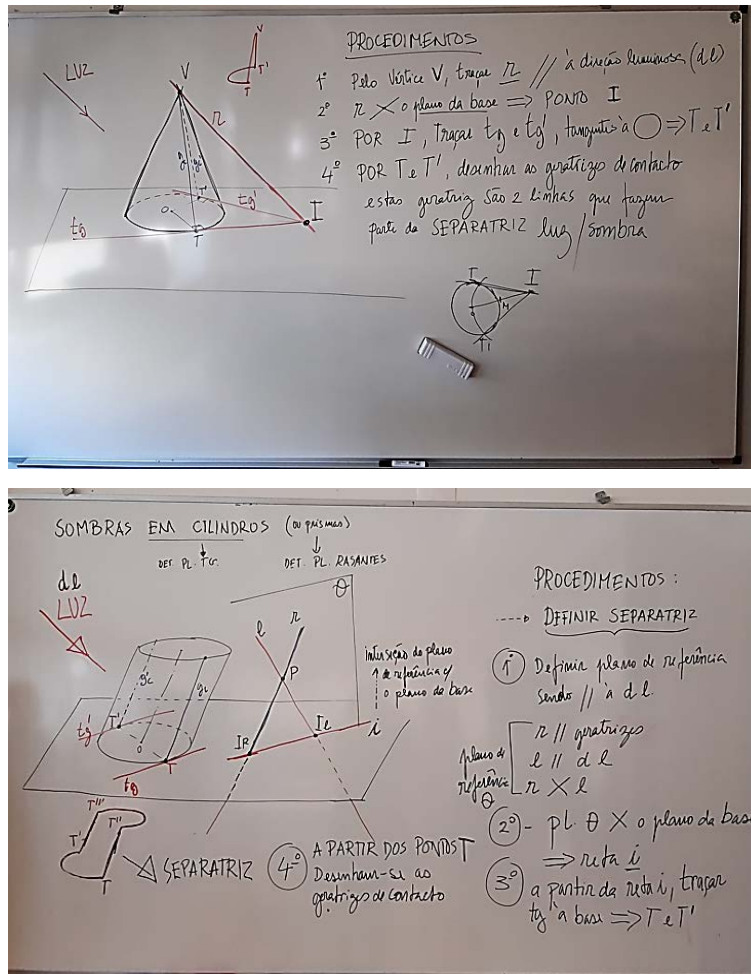 PROCEDIMENTOS
1º Pelo Vértice V, traçar r // à direção luminosa (dl)
2º r X o plano da base => PONTO I
3º POR I, Traçar tg e tg', tangentes à ◯ => T e T'
4º POR T e T', desenhar as geratrizes de contacto
estas geratriz São 2 linhas que fazem
parte da SEPARATRIZ luz/sombra
LUZ
V
V
T'
T
r
g'c
gc
T'
tg'
I
O
tg
T
T
I
M
O
T'
SOMBRAS EM CILINDROS (ou prismas)
DET. PL. TG.
DET. PL. RASANTES
dl
LUZ
g'c
gc
T'
tg'
O
T
tg
l
r
θ
P
Il
IR
i
interseção do plano
de referência c/
o plano da base
T'''
T''
T'
T
SEPARATRIZ
4º A PARTIR DOS PONTOS T
Desenham-se as
geratrizes de contacto
PROCEDIMENTOS :
DEFINIR SEPARATRIZ
1º Definir plano de referência
sendo // à dl.
plano de
referência
θ
r // geratrizes
l // dl
r X l
2º - pl. θ X o plano da base
=> reta i
3º a partir da reta i, traçar
tg à base => T e T'